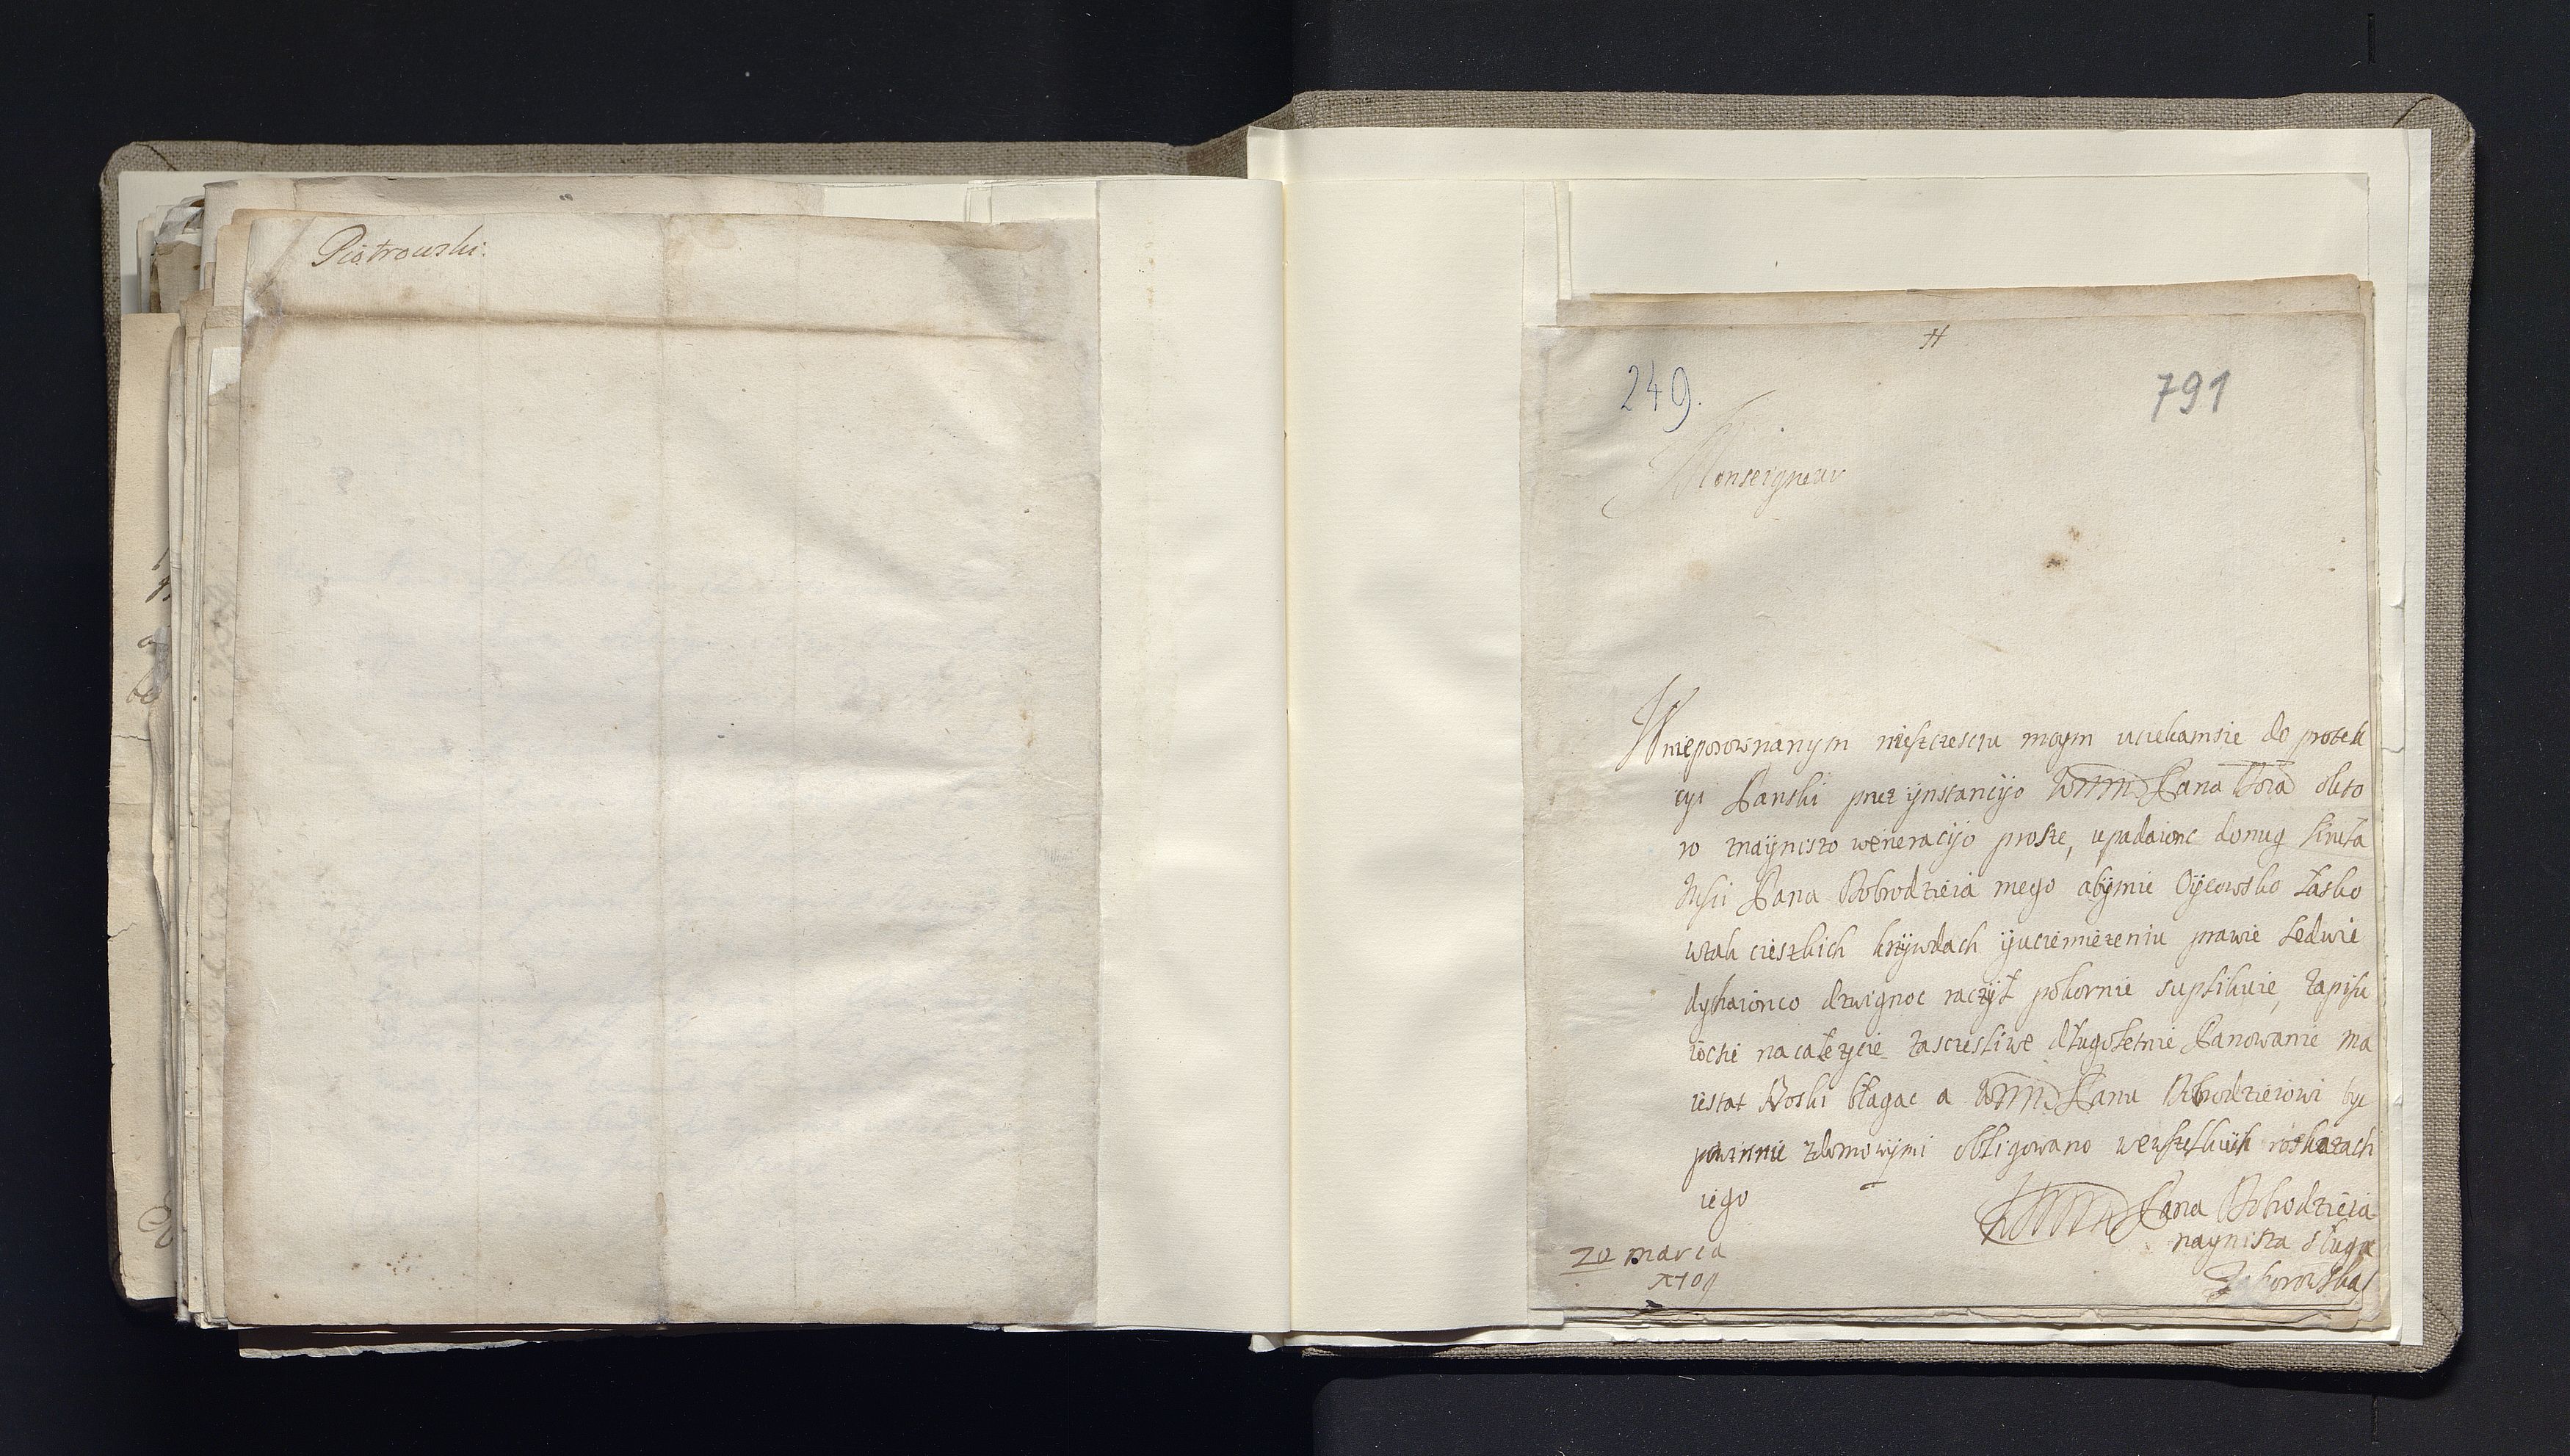 Piotrowski.
H
249.
791
Monseigneur
W nieporownanym niesczesciu moym uciekamsie do protek
cyi Panski prze ÿnstancyjo WMM Pana Dora okto
ro znaÿniszo weneracijo prosze, upadaionc donug
Pana Dobrodzieia mego abÿmie Oÿcowsko łasko
wtak cieszkich krzÿwdach ÿuciemiezeniu prawie ledwie
dychaionco dzwignoc raczÿł pokornie suplikuie, zapisu
iocsie nacałezycie zasczesliwe długoletnie Panowanie ma
iestat Boski błagac a WMM Panu Dobrodzieiowi byc
powinnie zdomowÿmi obligowano wewszeskich roskazach
iego
WMM Pana Dobrodzieia
naynisza sługa
20 marca
1709